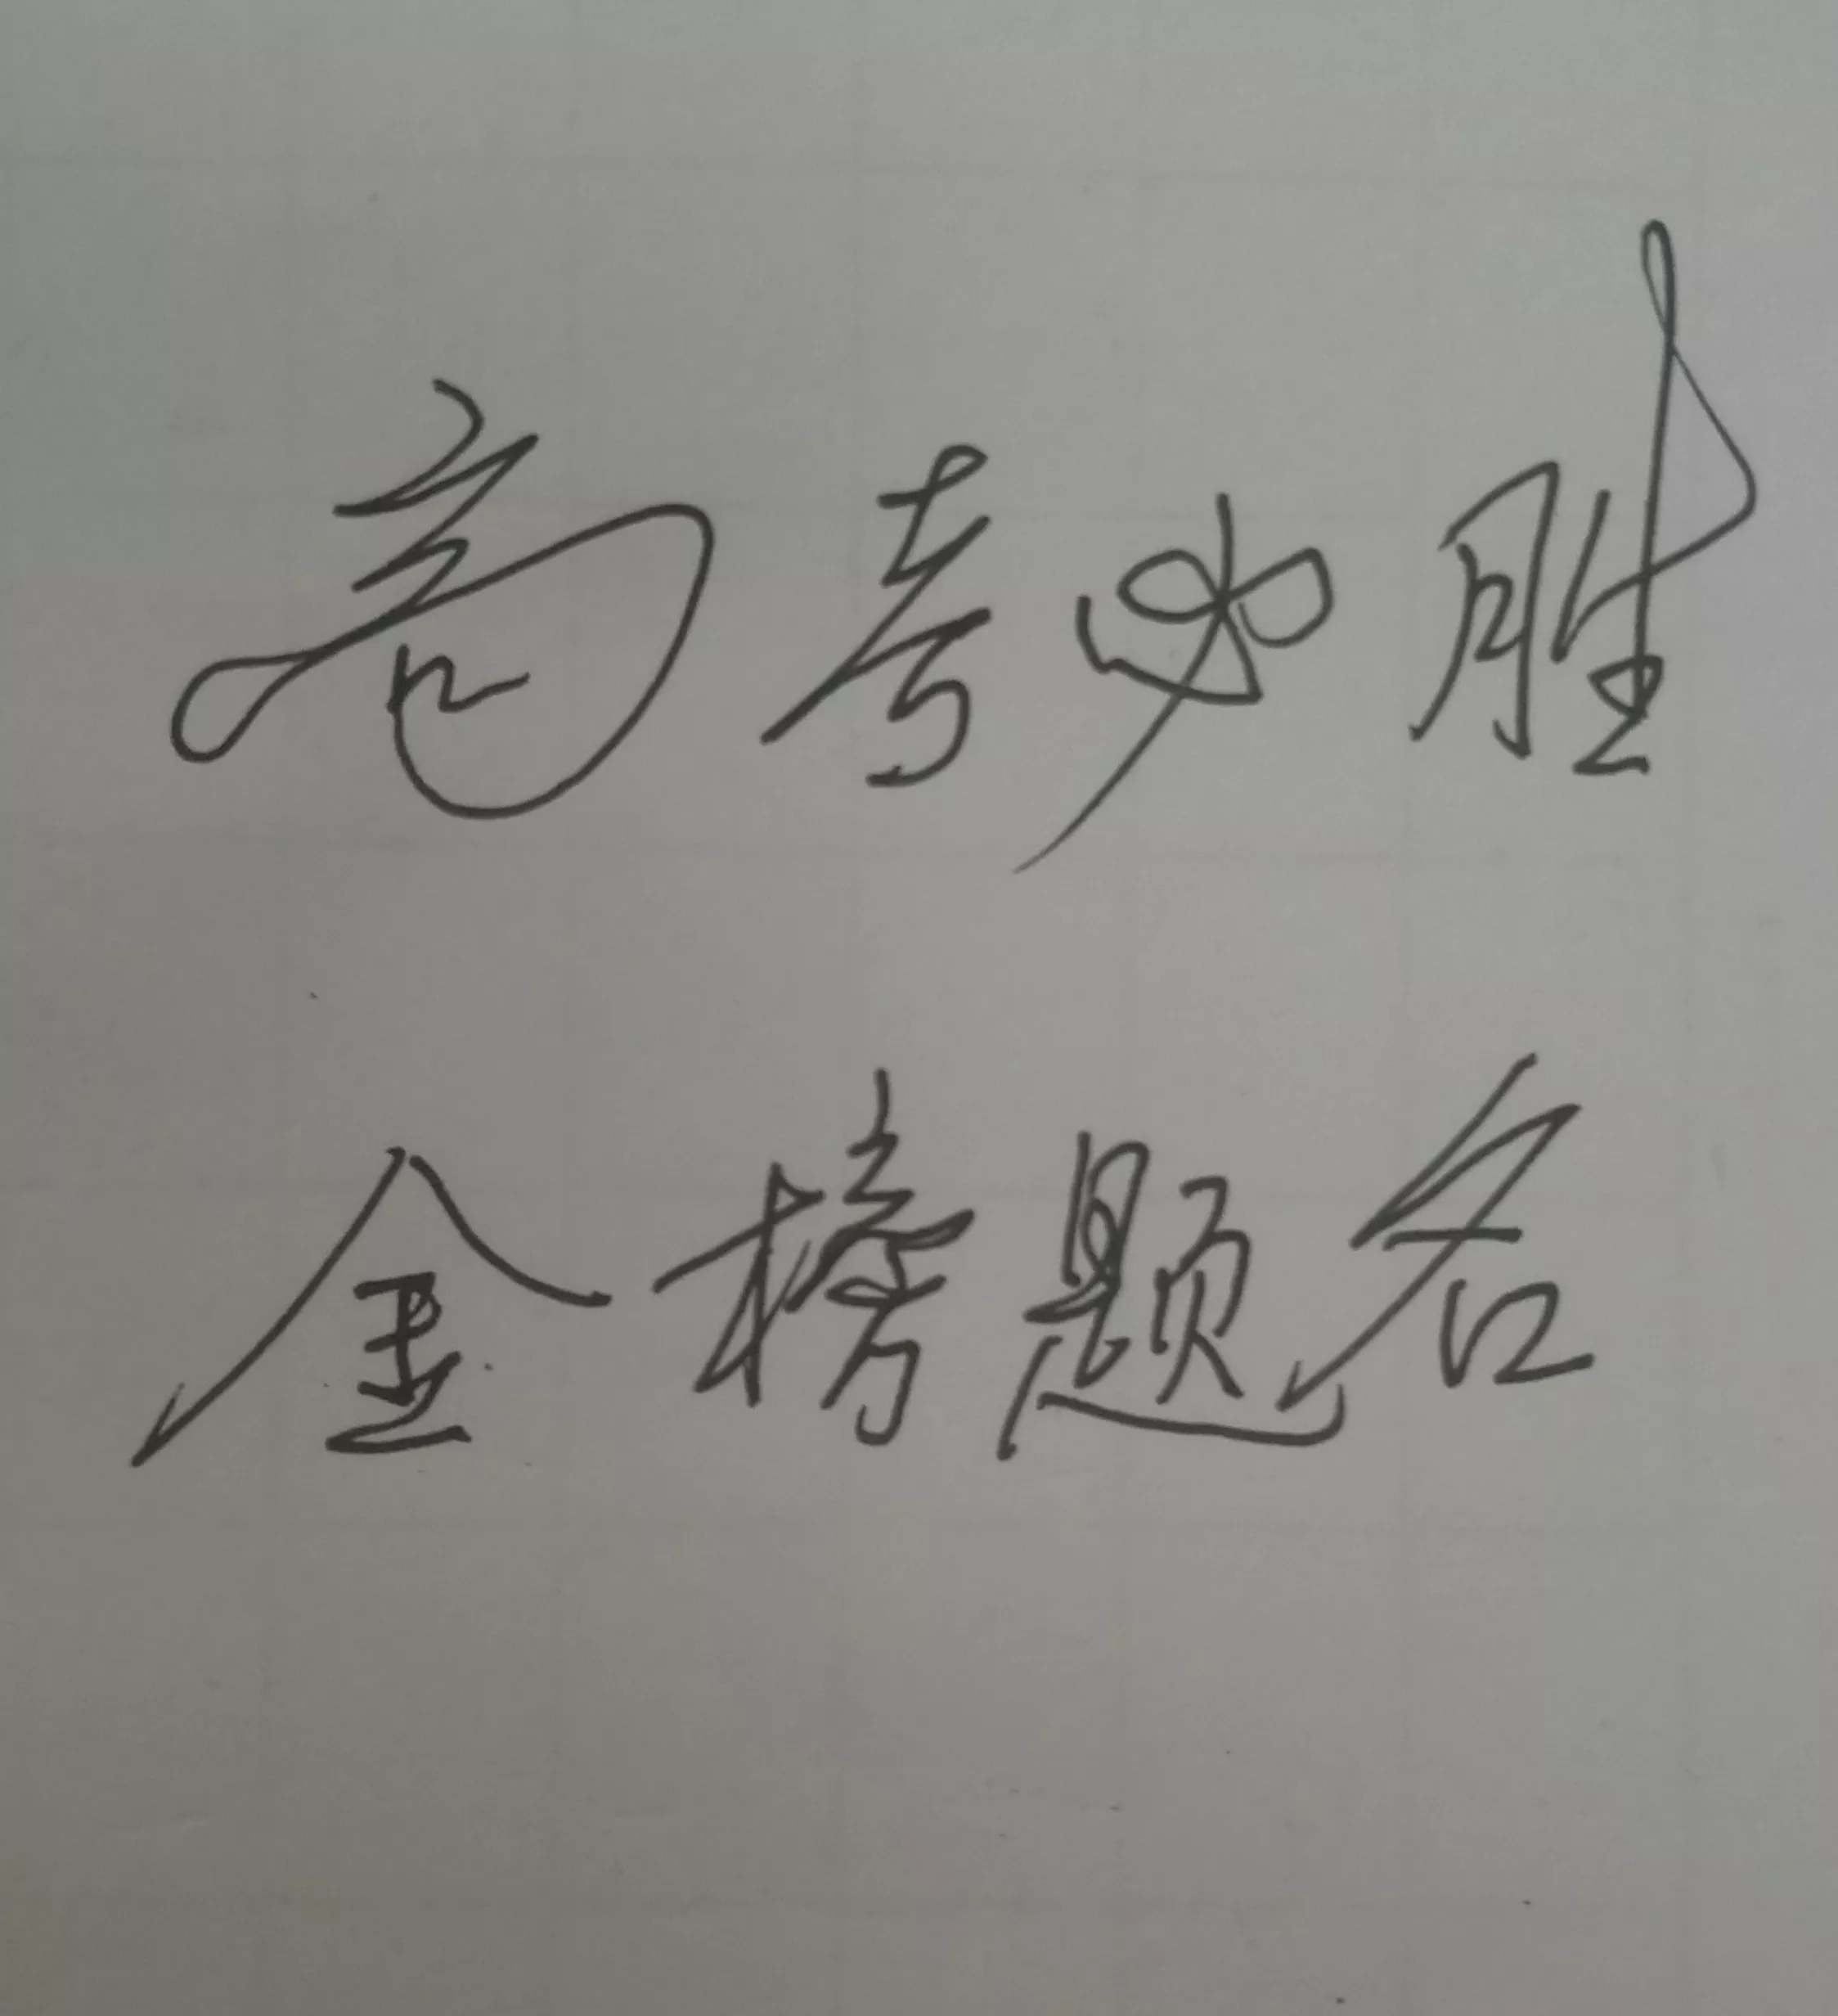 高考必胜
金榜题名